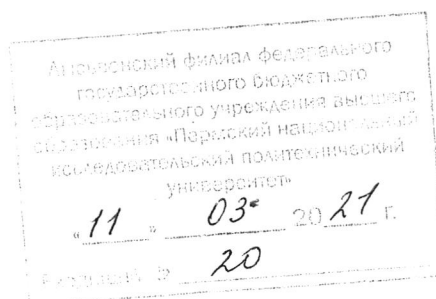 Лысьвенский филиал федерального
государственного бюджетного
образовательного учреждения высшего
образования «Пермский национальный
исследовательский политехнический
университет»
«11» 03 2021 г.
20